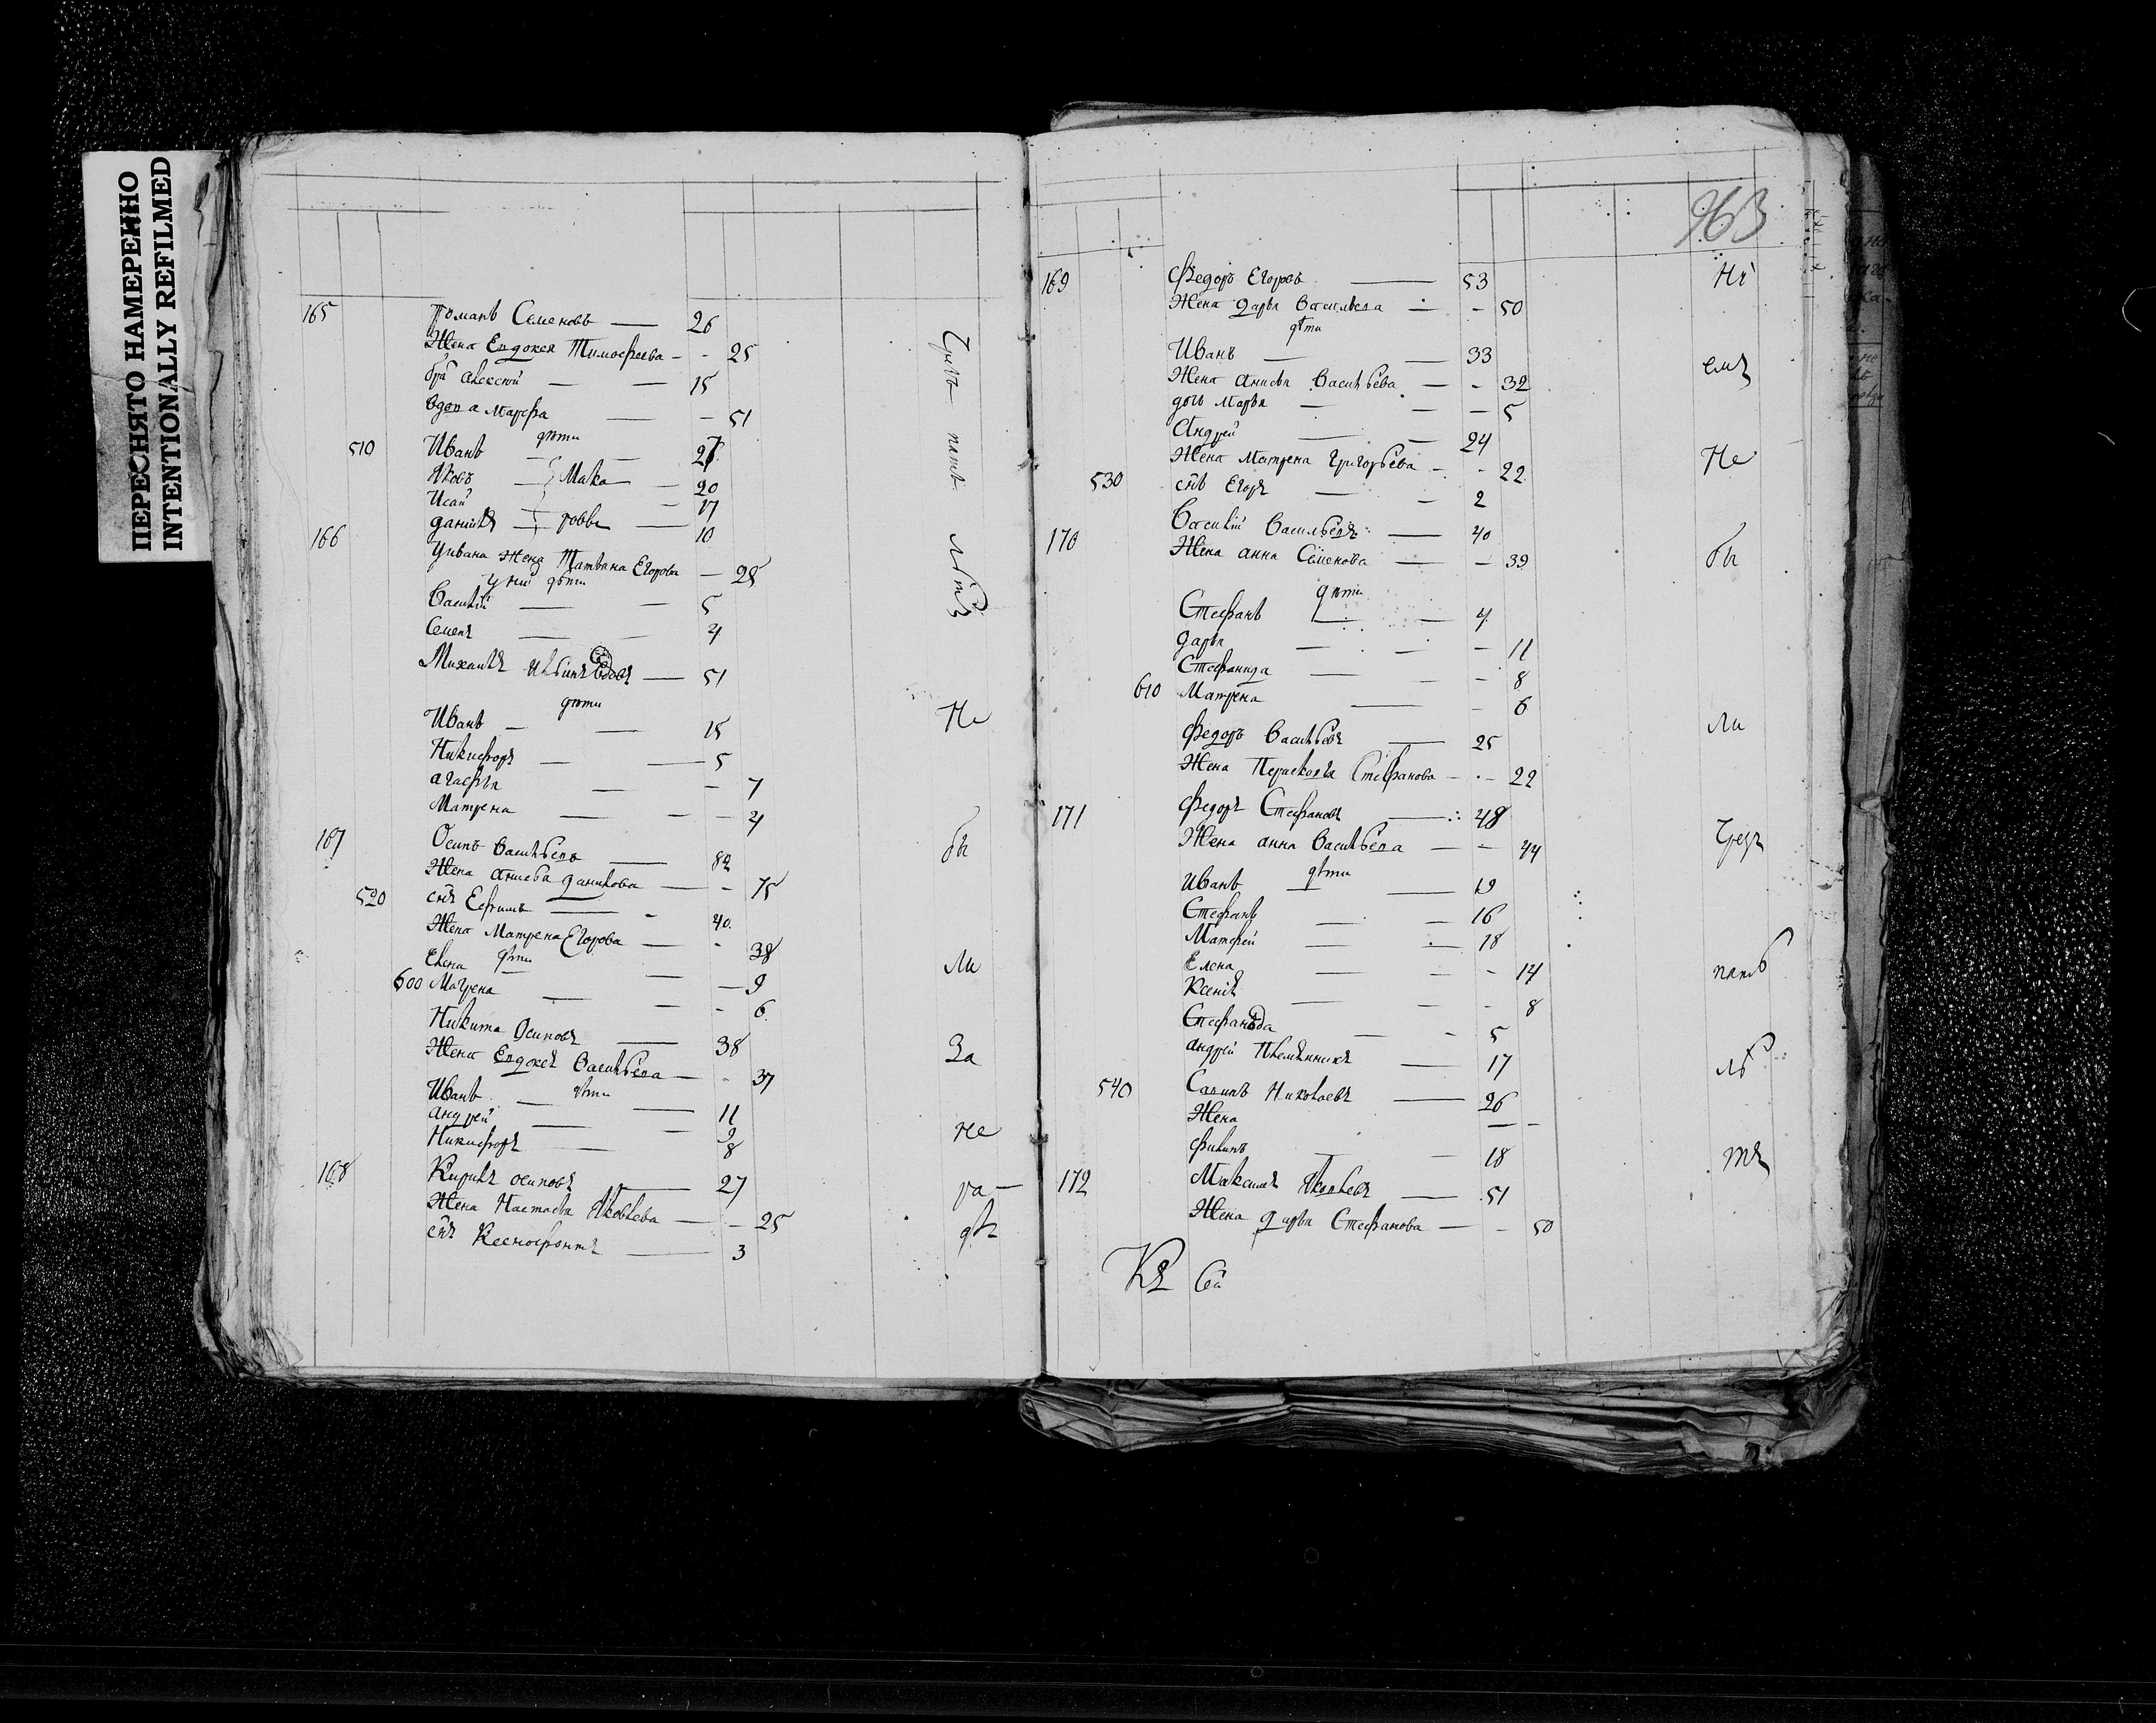 ПЕРЕСНЯТО НАМЕРЕННО
INTENTIONALLY REFILMED
165 Романъ Семеновъ — 26
Жена Евдокея Тимофеева - - 25
бра Алексѣй — — 15
вдова Марфа — - 51
дѣти
510 Иванъ — — 27
Яковъ — Мака — 20
Исай — - 17
Данила — ровы — 10
166 Уивана Жена Татьяна Егорова — 28
у ни дѣти
Василій — — 5
Семенъ — — 4
Михаила — 51
дѣти
Иванъ — — 15
Никифоръ — — 5
Агафья — - 7
Матрена — - - 4
167 Осипъ Васильевъ — 82
Жена Анисья Данилова — - 75
520 снъ Ефимъ — - 40
Жена Матрена Егорова — - 38
дѣти
Елена — — 9
600 Матрена — — - 6
Никита Осиповъ — 38
Жена Евдокея Васильева — - 37
дѣти
Иванъ — — 11
Андрей — — 9
Никифоръ — 8
168 Кирила Осиповъ — 27
Жена Настасья Яковлева — - 25
снъ Ксенофонтъ — 3
Чрезъ пять лѣтъ
Не
бы
ли
За
не
ра-
дѣ
963
169 Федоръ Егоровъ — 53
Жена Дарья Васильева — - 50
дѣти
Иванъ — — 33
Жена Анисья Васильева — - 32
дочь Марья — — - 5
Андрей — - 24
Жена Матрена Григорьева - - 22
530 снъ Егоръ — - 2
170 Василій Васильевъ — 40
Жена Анна Семенова — - 39
дѣти
Стефанъ — — 4
Дарья — — - 11
Стефанида — - - 8
610 Матрена — - 6
Федоръ Васильевъ — 25
Жена Пераскевья Стефанова - - 22
171 Федоръ Стефановъ — 48
Жена Анна Васильева — - 44
дѣти
Иванъ — — 19
Стефанъ — — 16
Матфей — — 18
Елена — — - 14
Ксенія — - - 8
Стефанида — - 5
Андрей Племянникъ — 17
540 Савинъ Николаевъ — 26
Жена — -
Филипъ — - 18
172 Максимъ Яковлевъ — 51
Жена Дарья Стефанова — - 50
Къ Сей
Ни
емъ
Не
бы
ли
Чрезъ
пять
лѣ
тъ